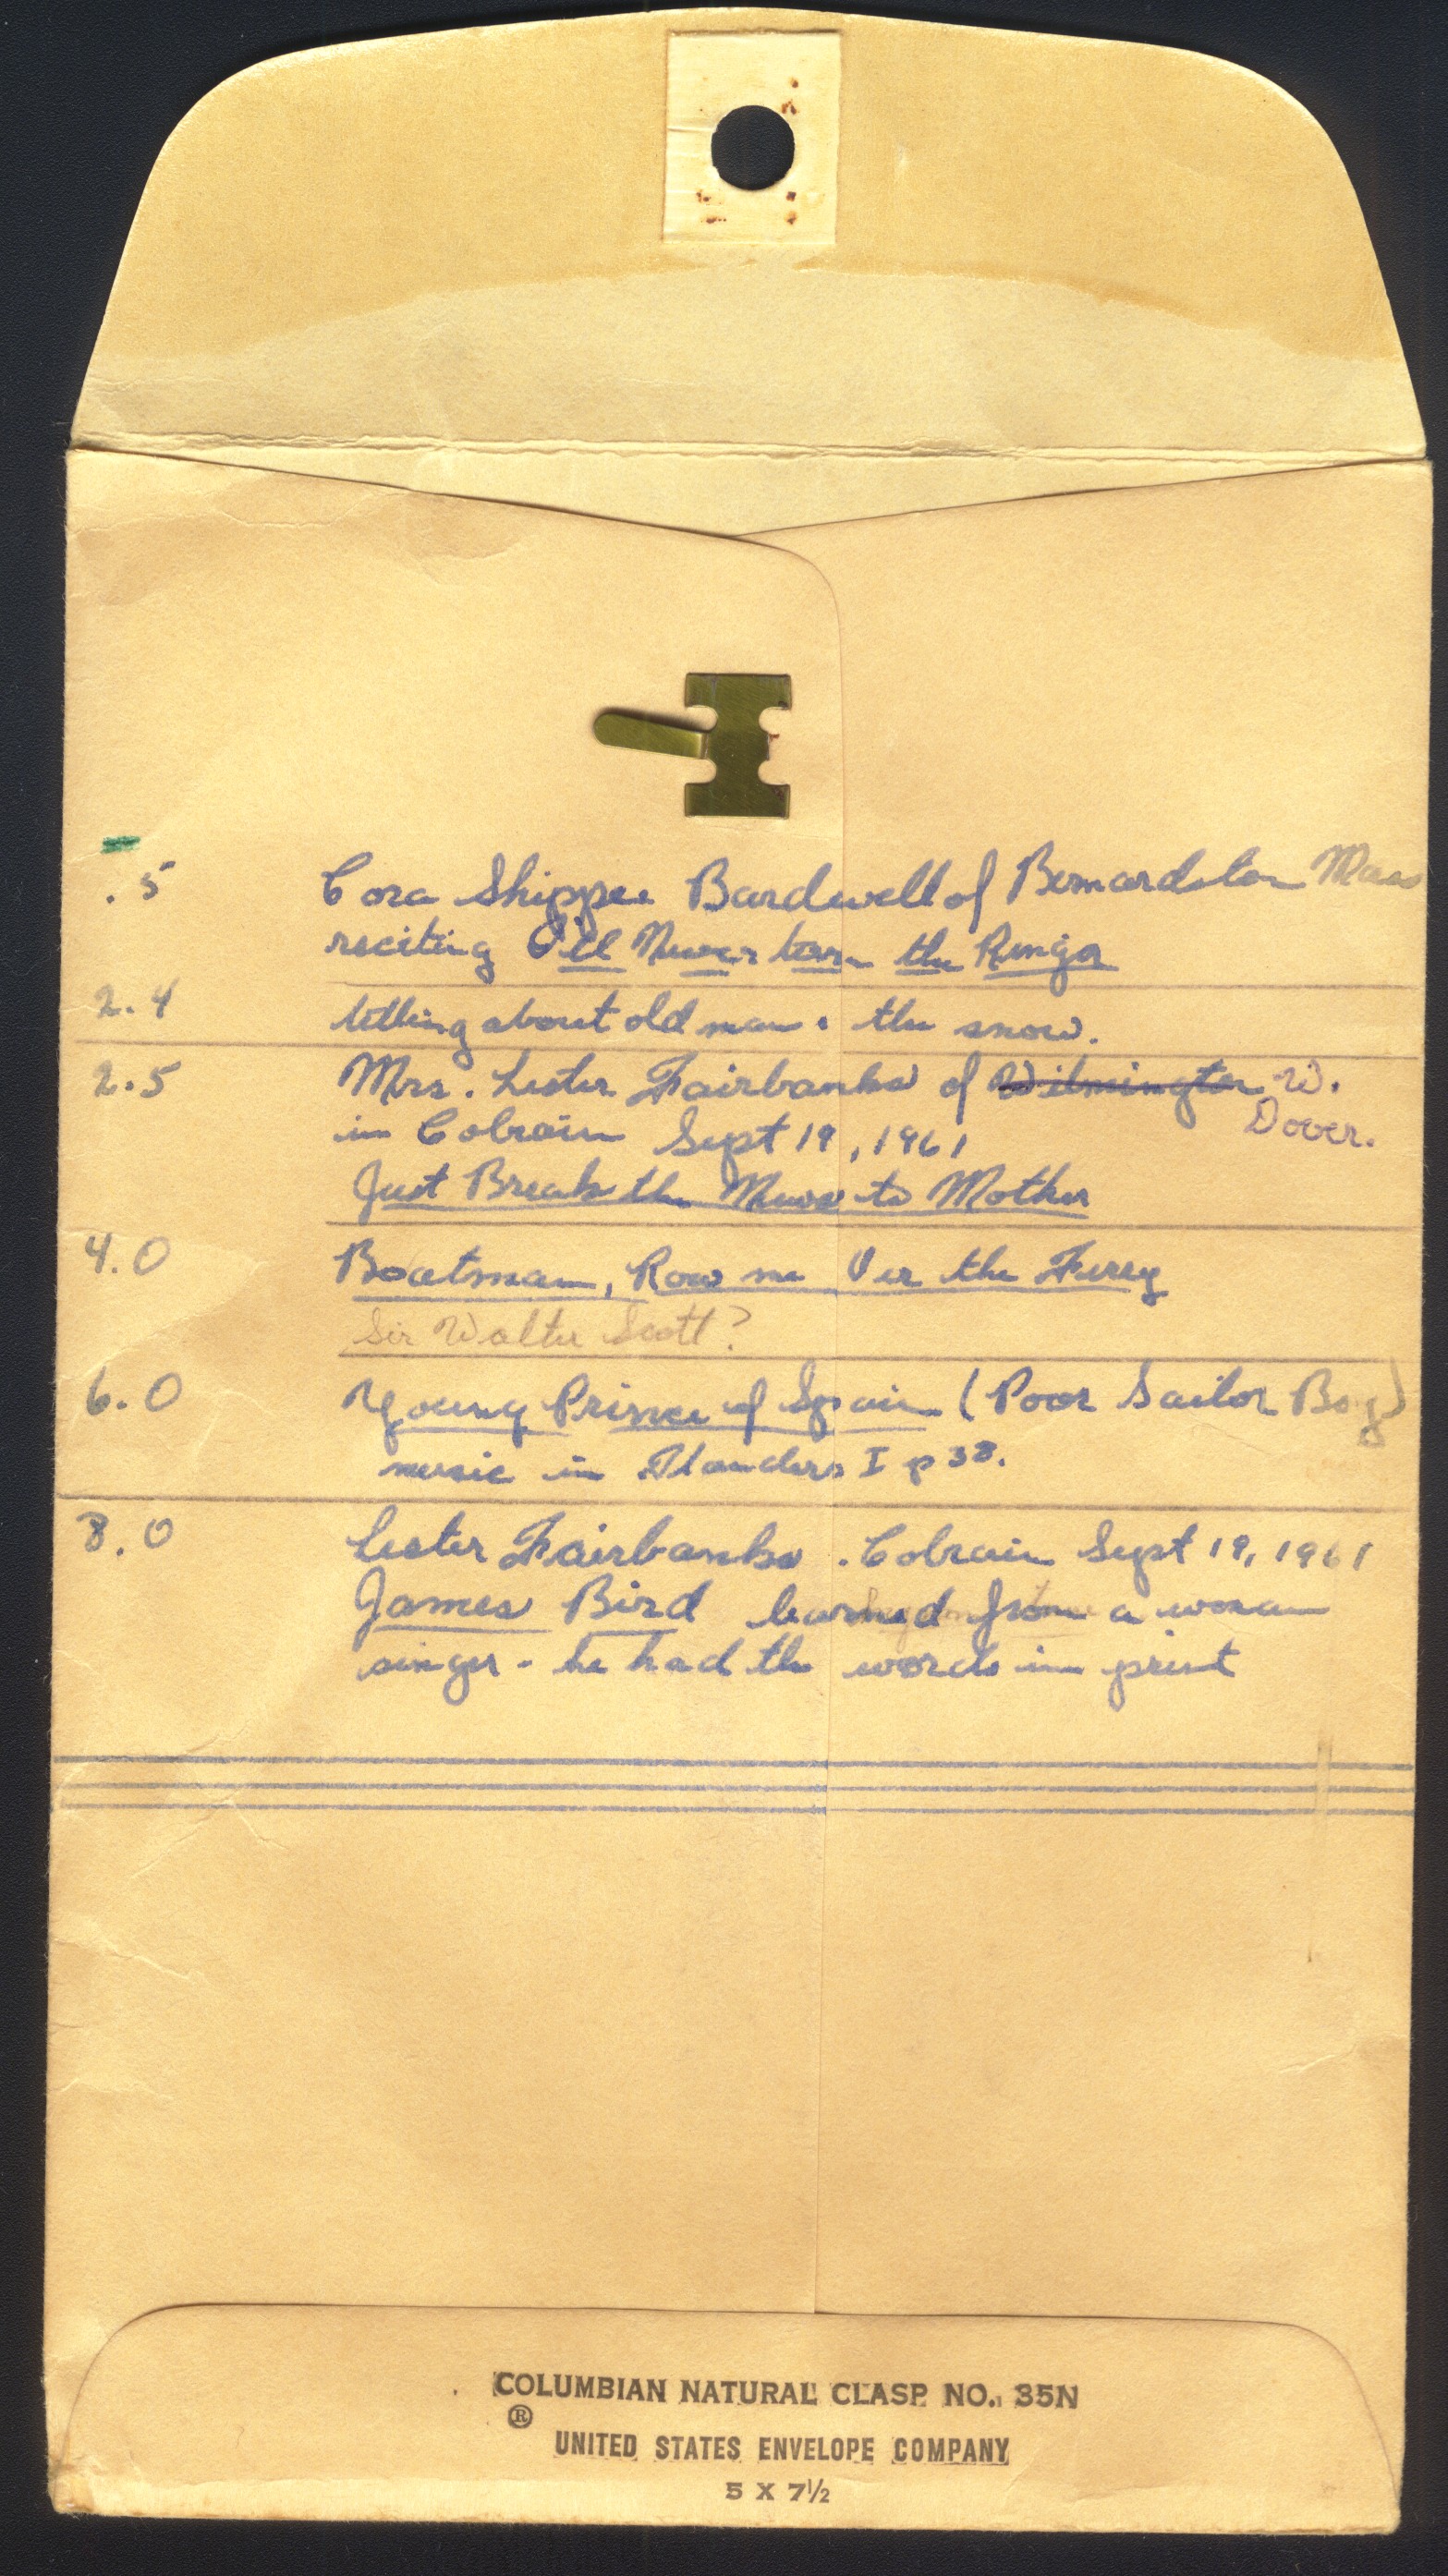 .5 Cora Shippee Bardwell of Bernardston Mass
reciting I'll Never turn the
2.4 telling about old man & the snow.
2.5 Mrs. Lester Fairbanks of Wilmington W.
Dover.
in Colrain Sept 19, 1961
Just Break the News to Mother
4.0 Boatman, Row me O'er the Ferry
Sir Walter Scott?
6.0 Young Prince of Spain (Poor Sailor Boy)
music in Flanders I p 38.
8.0 Lester Fairbanks. Colrain Sept 19, 1961
James Bird learned from a woman
singer - he had the words in print
COLUMBIAN NATURAL CLASP NO. 35N
®
UNITED STATES ENVELOPE COMPANY
5 X 7½